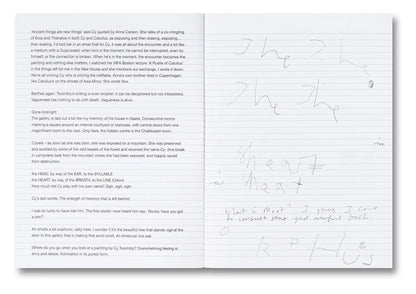 'Ancient things are new things' said Cy quoted by Anne Carson. She talks of a co-mingling
of Eros and Thanatos in both Cy and Catullus, as exposing and then erasing, exposing...
then erasing. I'd told her in an email that for Cy, it was all about the encounter and a bit like
a medium with a Ouija board, when he's in the moment, he cannot be interrupted, even by
himself, or the connection is broken. When he's in the moment, the encounter becomes the
painting and nothing else matters. I watched her MFA Boston lecture 'A Rustle of Catullus'
in the things left for me in the Max House and she mentions our exchange. I wrote it down.
We're all circling Cy who is circling the ineffable. Anne's own brother died in Copenhagen,
like Catullus's on the shores of Asia Minor. She wrote Nox.
Barthes again: Twombly's writing is even emptier; it can be deciphered but not interpreted.
Vagueness has nothing to do with death. Vagueness is alive.
Gone midnight
The gallery is laid out a bit like my memory of his house in Gaeta. Consecutive rooms
making a square around an internal courtyard or staircase, with central doors from one
magnificent room to the next. Only here, the hidden centre is the Chalkboard room.
Cybele - as soon as she was born, she was exposed on a mountain. She was preserved
and suckled by some of the wild beasts of the forest and received the name Cy- (line break
in Lempriere) bele from the mountain where she had been exposed, and happily saved
from destruction.
the HEAD, by way of the EAR, to the SYLLABLE
the HEART, by way of the BREATH, to the LINE (Olson)
How much did Cy play with his own name? Sigh, sigh, sigh
Cy's last words: The strength of memory that is left behind
I was so lucky to have met him. The first words I ever heard him say: 'Nicola, have you
got a pen?'
Air smells a bit sulphuric, salty here. I wonder if it's the beautiful tree that stands vigil at the
door to this gallery that is making that avoid smell. An American live oak.
Where do you go when you look at a painting by Cy Twombly? Overwhelming feeling is
envy and desire. Admiration in its purest form.
The The
The The
in
heart
a
What is Meat? I guess I have